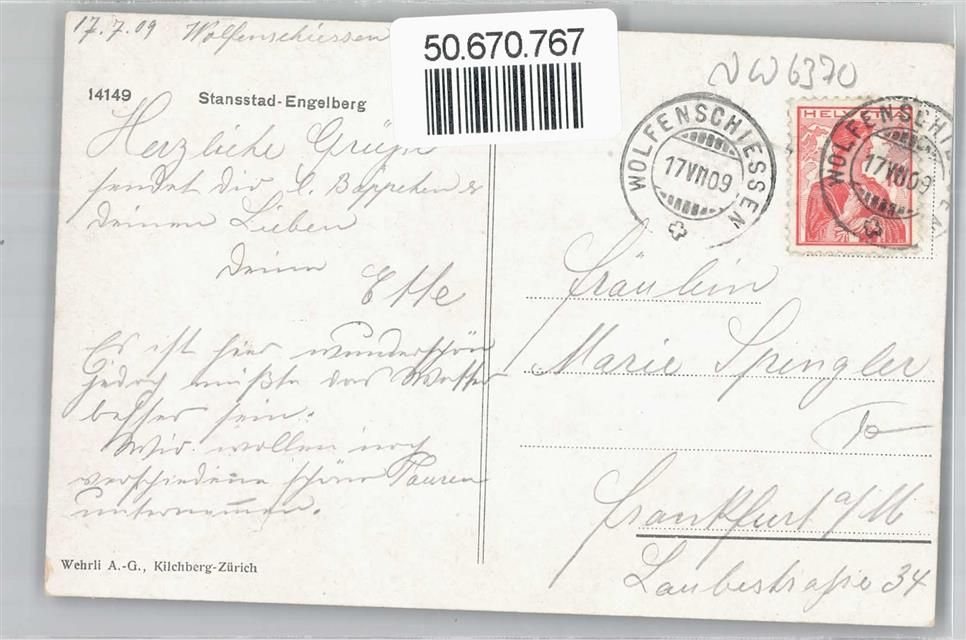 17.7.09 Wolfenschiessen
50.670.767
NW 6370
14149 Stansstad-Engelberg
WOLFENSCHIESSEN
17 VII 09
HELVETIA
WOLFENSCHIESSEN
17 VII 09
Herzliche Grüße
sendet dir &
deinen Lieben
deine
Es ist hier wunderschön
jedoch müßte das Wetter
besser sein.
Wir wollen noch
verschiedene schöne Touren
unternehmen.
Fräulein
Marie Spengler
Frankfurt a/M
Laubestraße 34
Wehrli A.-G., Kilchberg-Zürich